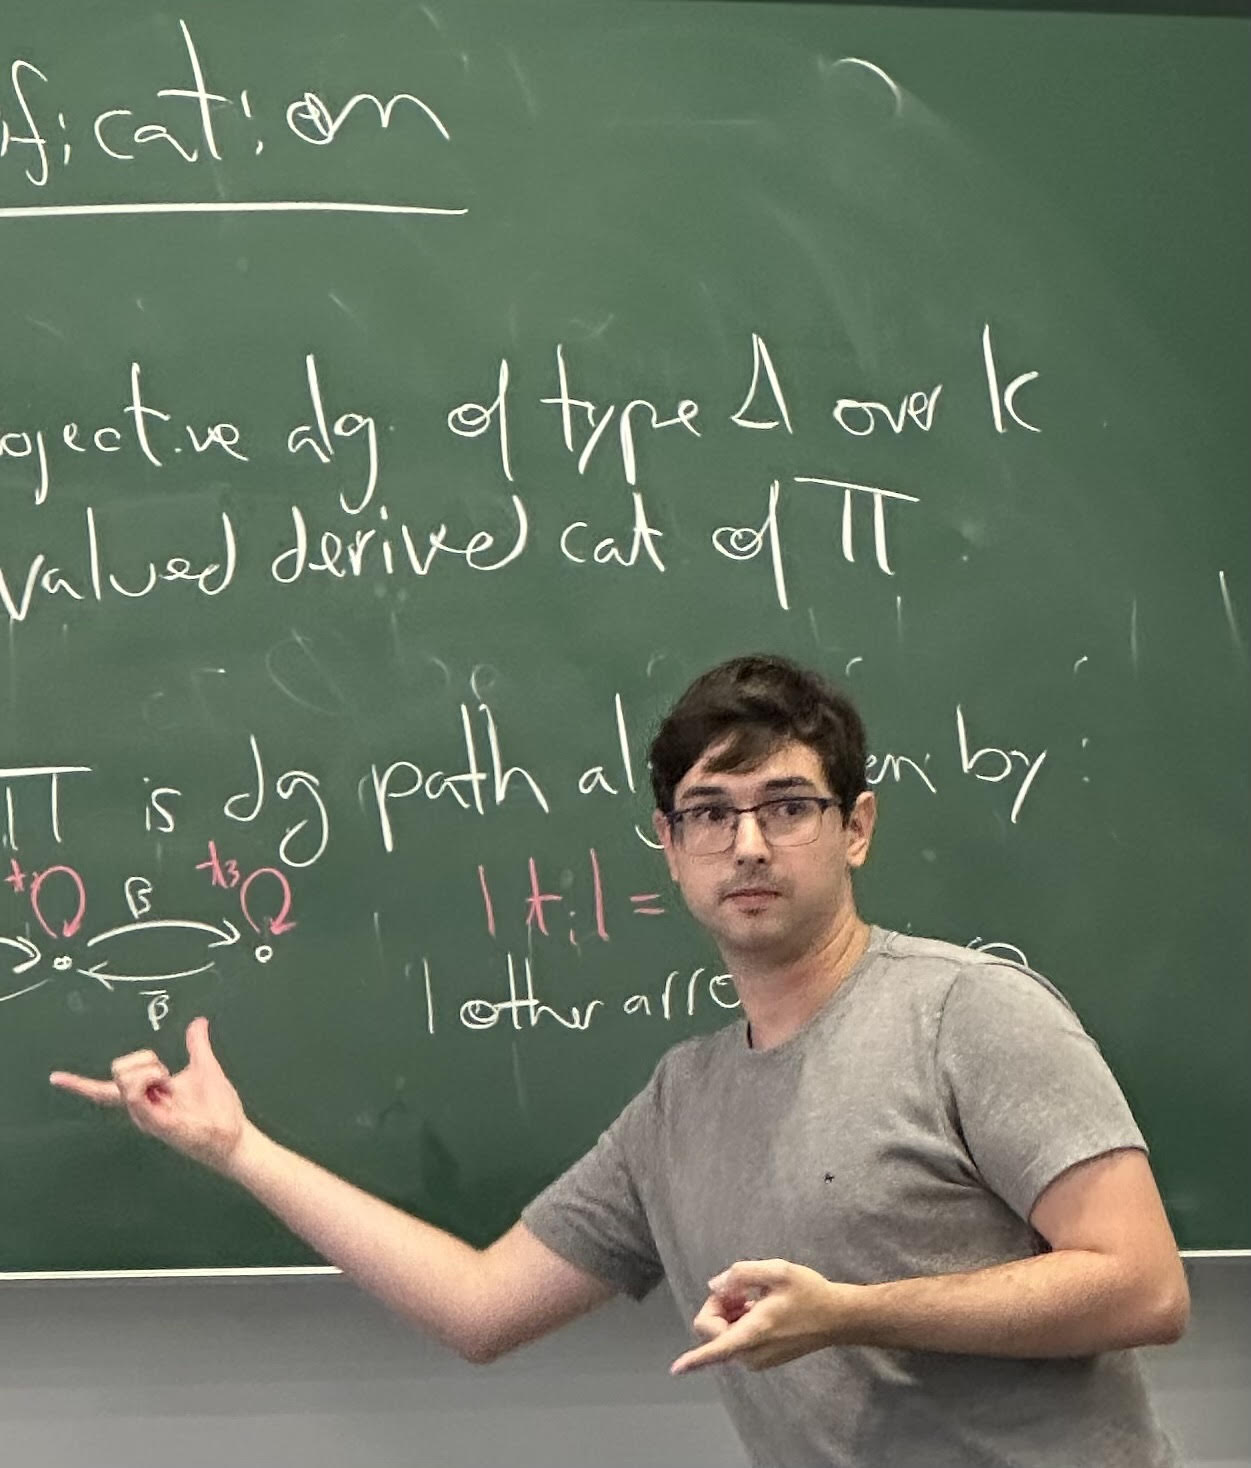 ification
ojective alg. of type Δ over k
valued derived cat of Π
Π is dg path al en by:
β t₃ |tᵢ| =
β̄ | other arro